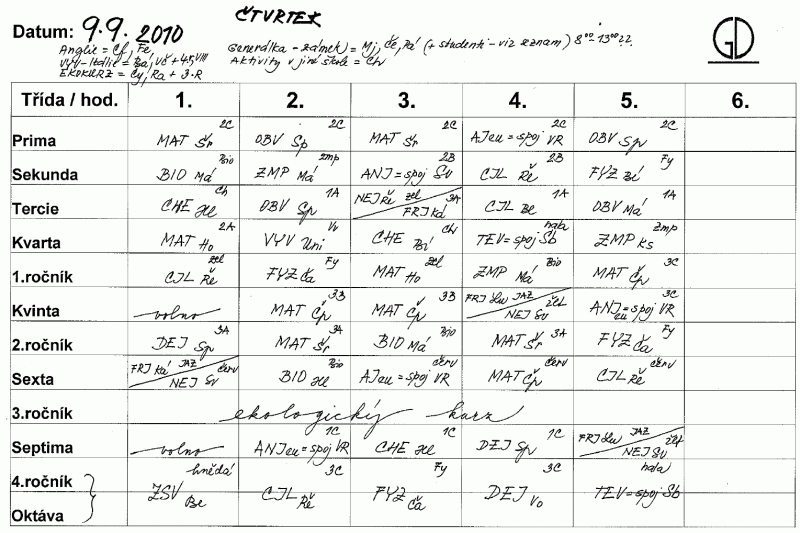 ČTVRTEK
Datum: 9.9. 2010
Anglie = Cf, Fe,
VYV-Itálie = Ba, Vč + 4.S, VIII
EKOKURZ = Čy, Ra + 3.R
Generálka - zámek) = Mj, Če, Pá (+ studenti - viz seznam) 8⁰⁰-13⁰⁰
Aktivity v jiné škole = Chv
GD
Třída / hod. 1. 2. 3. 4. 5. 6.
Prima MAT Šr 2C OBV Sp 2C MAT Šr 2C AJeu = spoj VR 2C OBV Sp 2C
Sekunda BIO Má Bio ZMP Má Zmp ANJ = spoj Sv 2B CJL Ře 2B FYZ Bí Fy
Tercie CHE He Ch OBV Sp 1A NEJ Ře zel FRJ Ká 3A CJL Be 1A OBV Má 1A
Kvarta MAT Ho 2A VYV Uni Vv CHE Bí Ch TEV = spoj Sb hala ZMP Ks Zmp
1.ročník CJL Ře zel FYZ Ča Fy MAT Ho zel ZMP Má Bio MAT Čp 3C
Kvinta volno MAT Čp 3B MAT Čp 3B FRJ Lw JAZ NEJ Sv žel ANJeu = spoj VR 3C
2.ročník DEJ Sp 3A MAT Šr 3A BIO Má Bio MAT Šr 3A FYZ Ča Fy
Sexta FRJ Ká JAZ NEJ Sv červ BIO He Bio AJeu = spoj VR červ MAT Čp červ CJL Ře červ
3.ročník ekologický kurz
Septima volno ANJeu = spoj VR 1C CHE He 1C DEJ Sp 1C FRJ Lw JAZ NEJ Sv žel
4.ročník Oktáva ZSV Be hnědá CJL Ře 3C FYZ Ča Fy DEJ Vo 3C TEV = spoj Sb hala